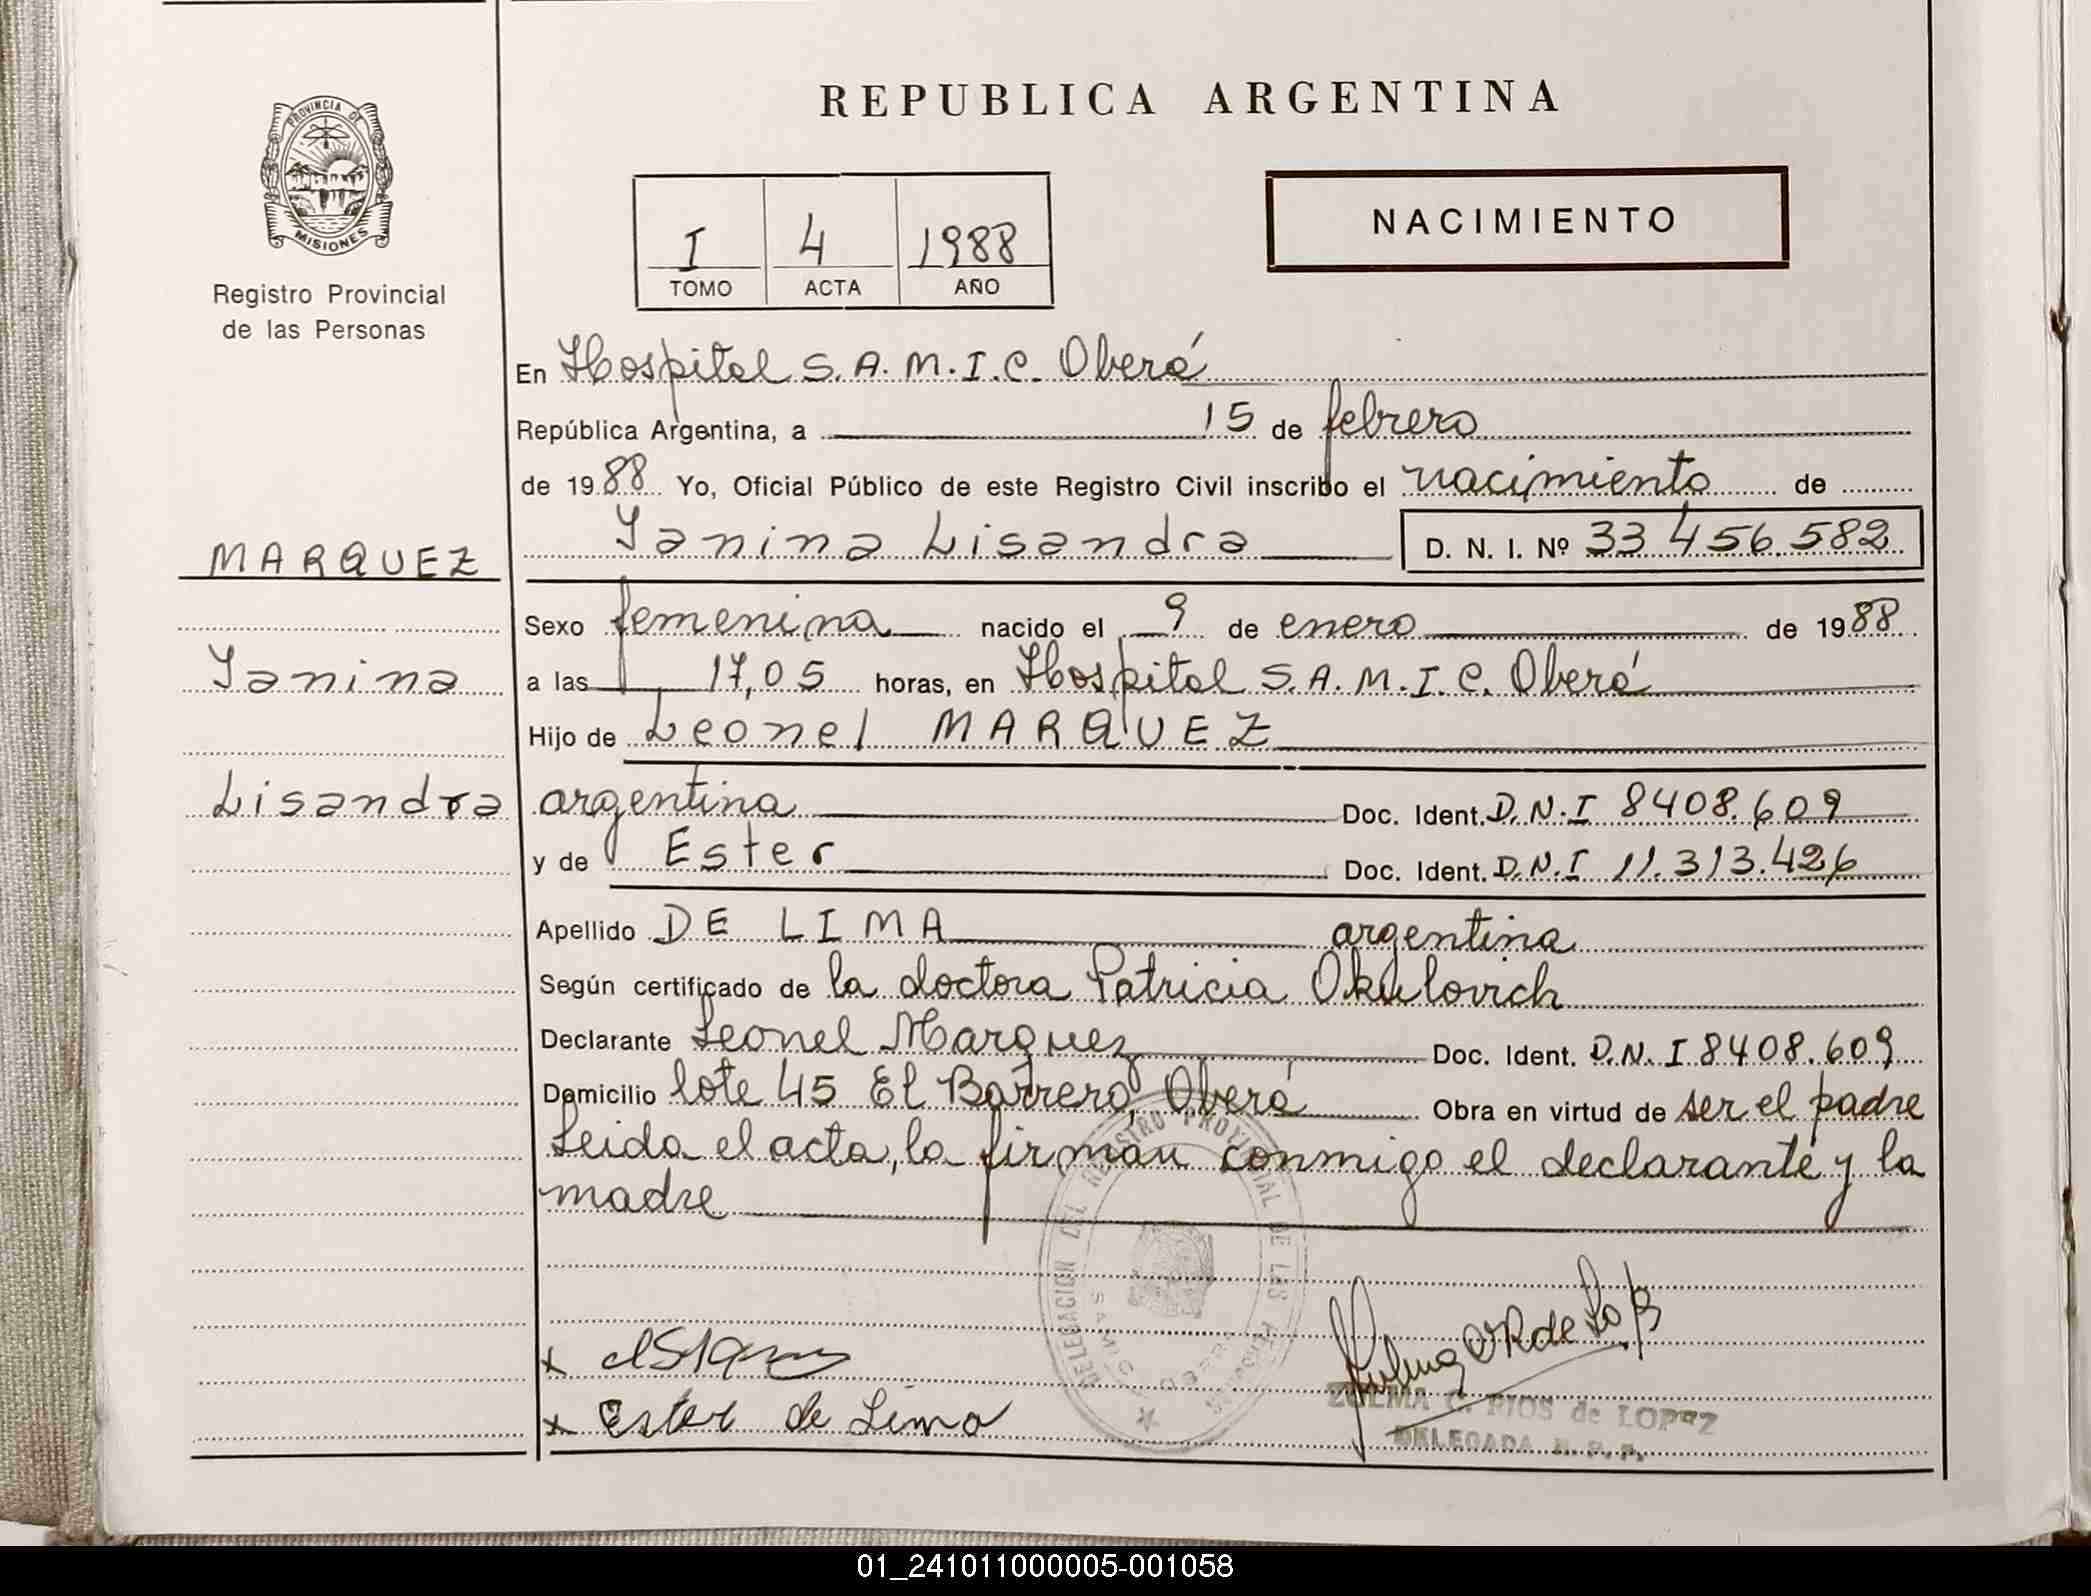 REPUBLICA ARGENTINA
PROVINCIA DE
MISIONES
Registro Provincial
de las Personas
I 4 1988
TOMO ACTA AÑO
NACIMIENTO
En Hospital S.A.M.I.C. Oberá
República Argentina, a 15 de febrero
de 1988 Yo, Oficial Público de este Registro Civil inscribo el nacimiento de
MARQUEZ
Yanina Lisandra D. N. I. Nº 33 456.582
Sexo femenina nacido el 9 de enero de 1988
Yanina
a las 17,05 horas, en Hospital S.A.M.I.C. Oberá
Hijo de Leonel MARQUEZ
Lisandra
argentina Doc. Ident. D.N.I 8408.609
y de Ester Doc. Ident. D.N.I 11.313.426
Apellido DE LIMA argentina
Según certificado de la doctora Patricia Okulovich
Declarante Leonel Marquez Doc. Ident. D.N.I 8408.609
Domicilio lote 45 El Barrero, Oberá Obra en virtud de ser el padre
Leida el acta, la firman conmigo el declarante y la
madre
DELEGACION DEL REGISTRO PROVINCIAL DE LAS PERSONAS
x
x Ester de Lima
ZULMA C. RIOS de LOPEZ
DELEGADA R. P. P.
01_241011000005-001058